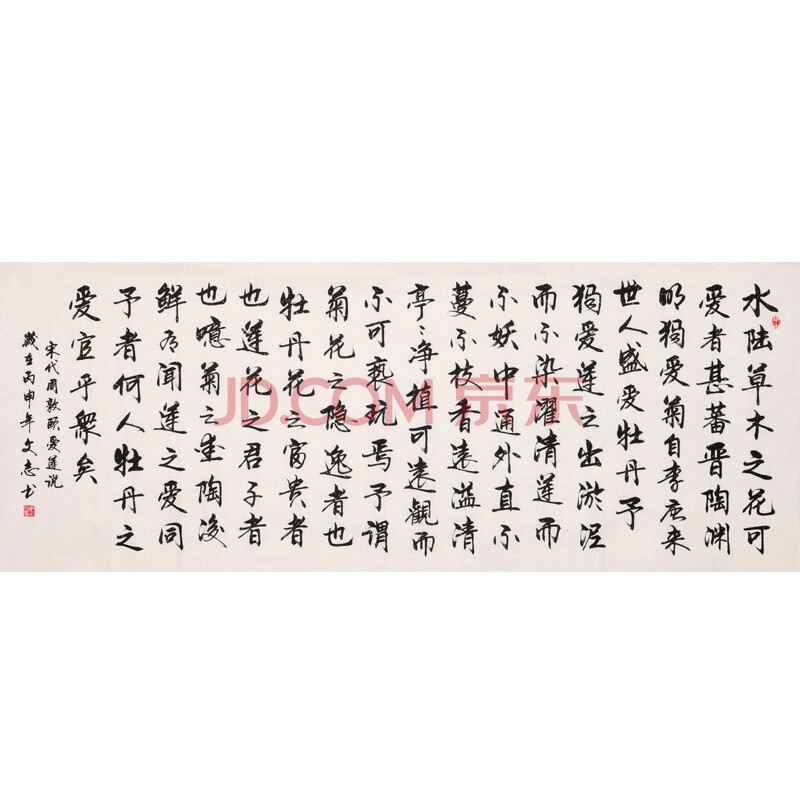 水陆草木之花可
爱者甚蕃晋陶渊
明独爱菊自李唐来
世人盛爱牡丹予
独爱莲之出淤泥
而不染濯清莲而
不妖中通外直不
蔓不枝香遠溢清
亭〻净植可遠觀而
不可亵玩焉予谓
菊花之隐逸者也
牡丹花之富贵者
也莲花之君子者
也噫菊之爱陶後
鲜有闻莲之爱同
予者何人牡丹之
爱宜乎眾矣
宋代周敦颐爱莲说
歲在丙申年文志书
JD.COM 京东